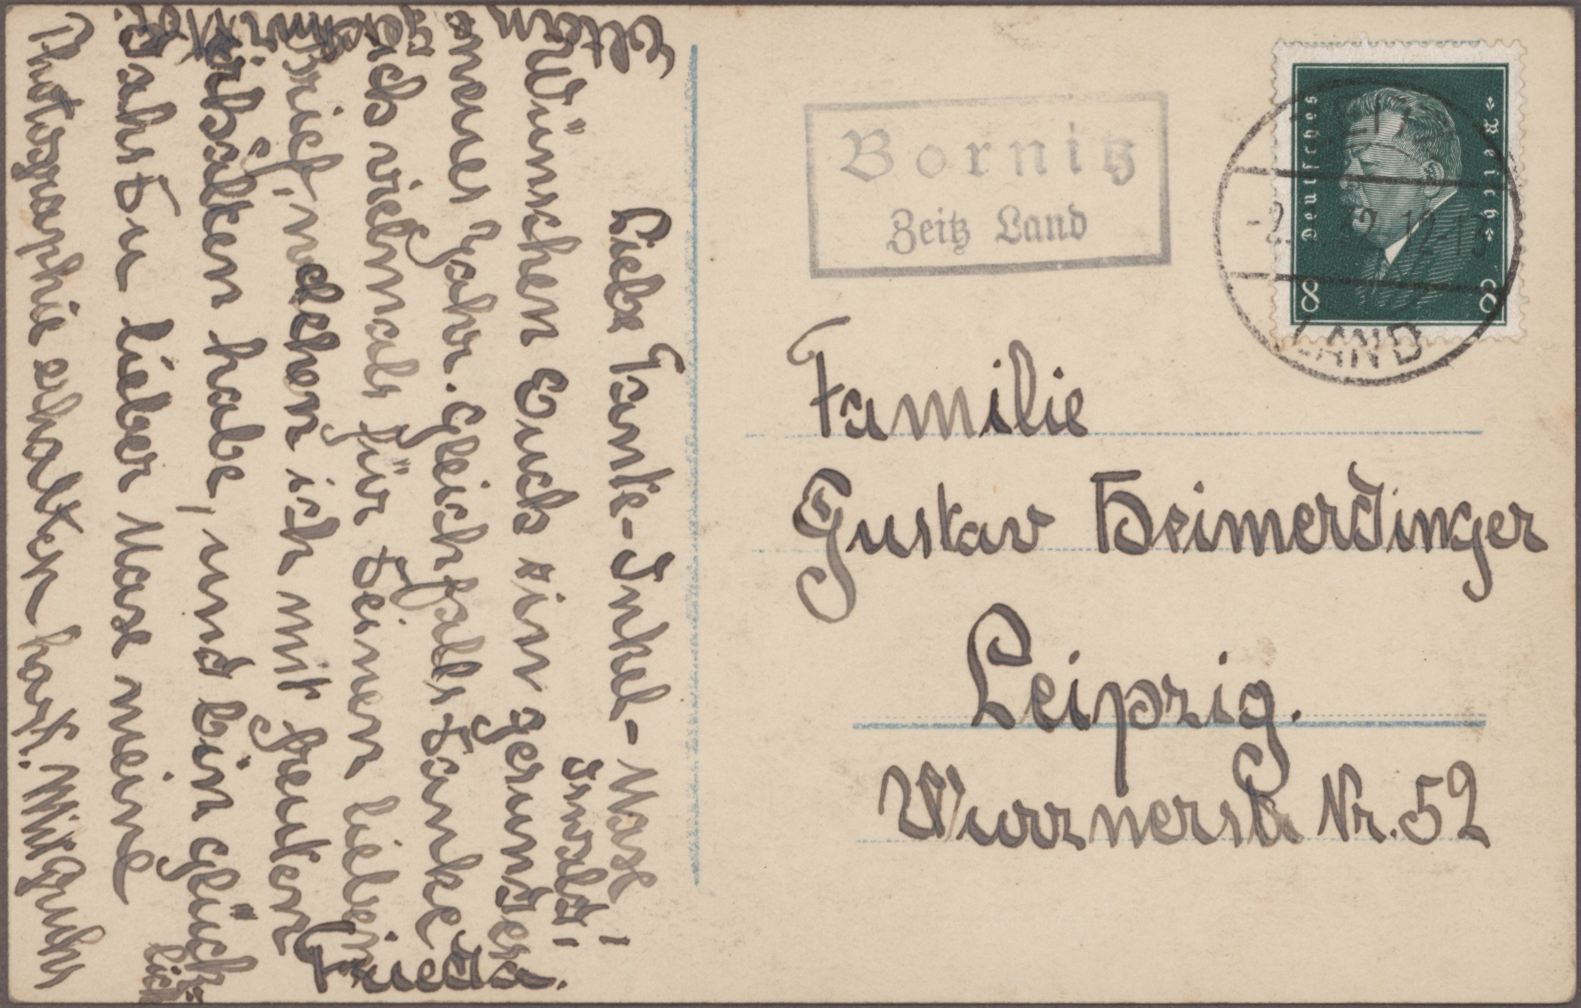 Liebe Tante-Onkel-Max!
Ewald!
Wünschen Euch ein gesundes
neues Jahr. Gleichfalls danke
ich vielmals für deinen lieben
Brief, welchen ich mit freuden
erhalten habe, und bin glück-
lich
daß du lieber Max meine
Photographie erhalten hast. Mit Gruß
Frieda.
Eltern
Geschwister.
Bornitz
Zeitz Land
Deutsches Reich
8 8
ZEITZ
-2. 12-13
LAND
Familie
Gustav Heimerdinger
Leipzig.
Wurznerstr. Nr. 52